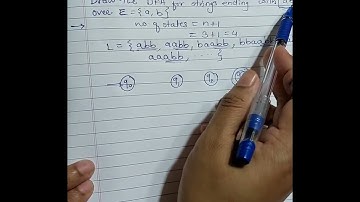 Draw the DFA for strings ending with
over Σ = {a, b}
no of states = n+1
= 3+1 = 4
L = { abb, aabb, babb, bba
aaabb, }
q0 q1 q2